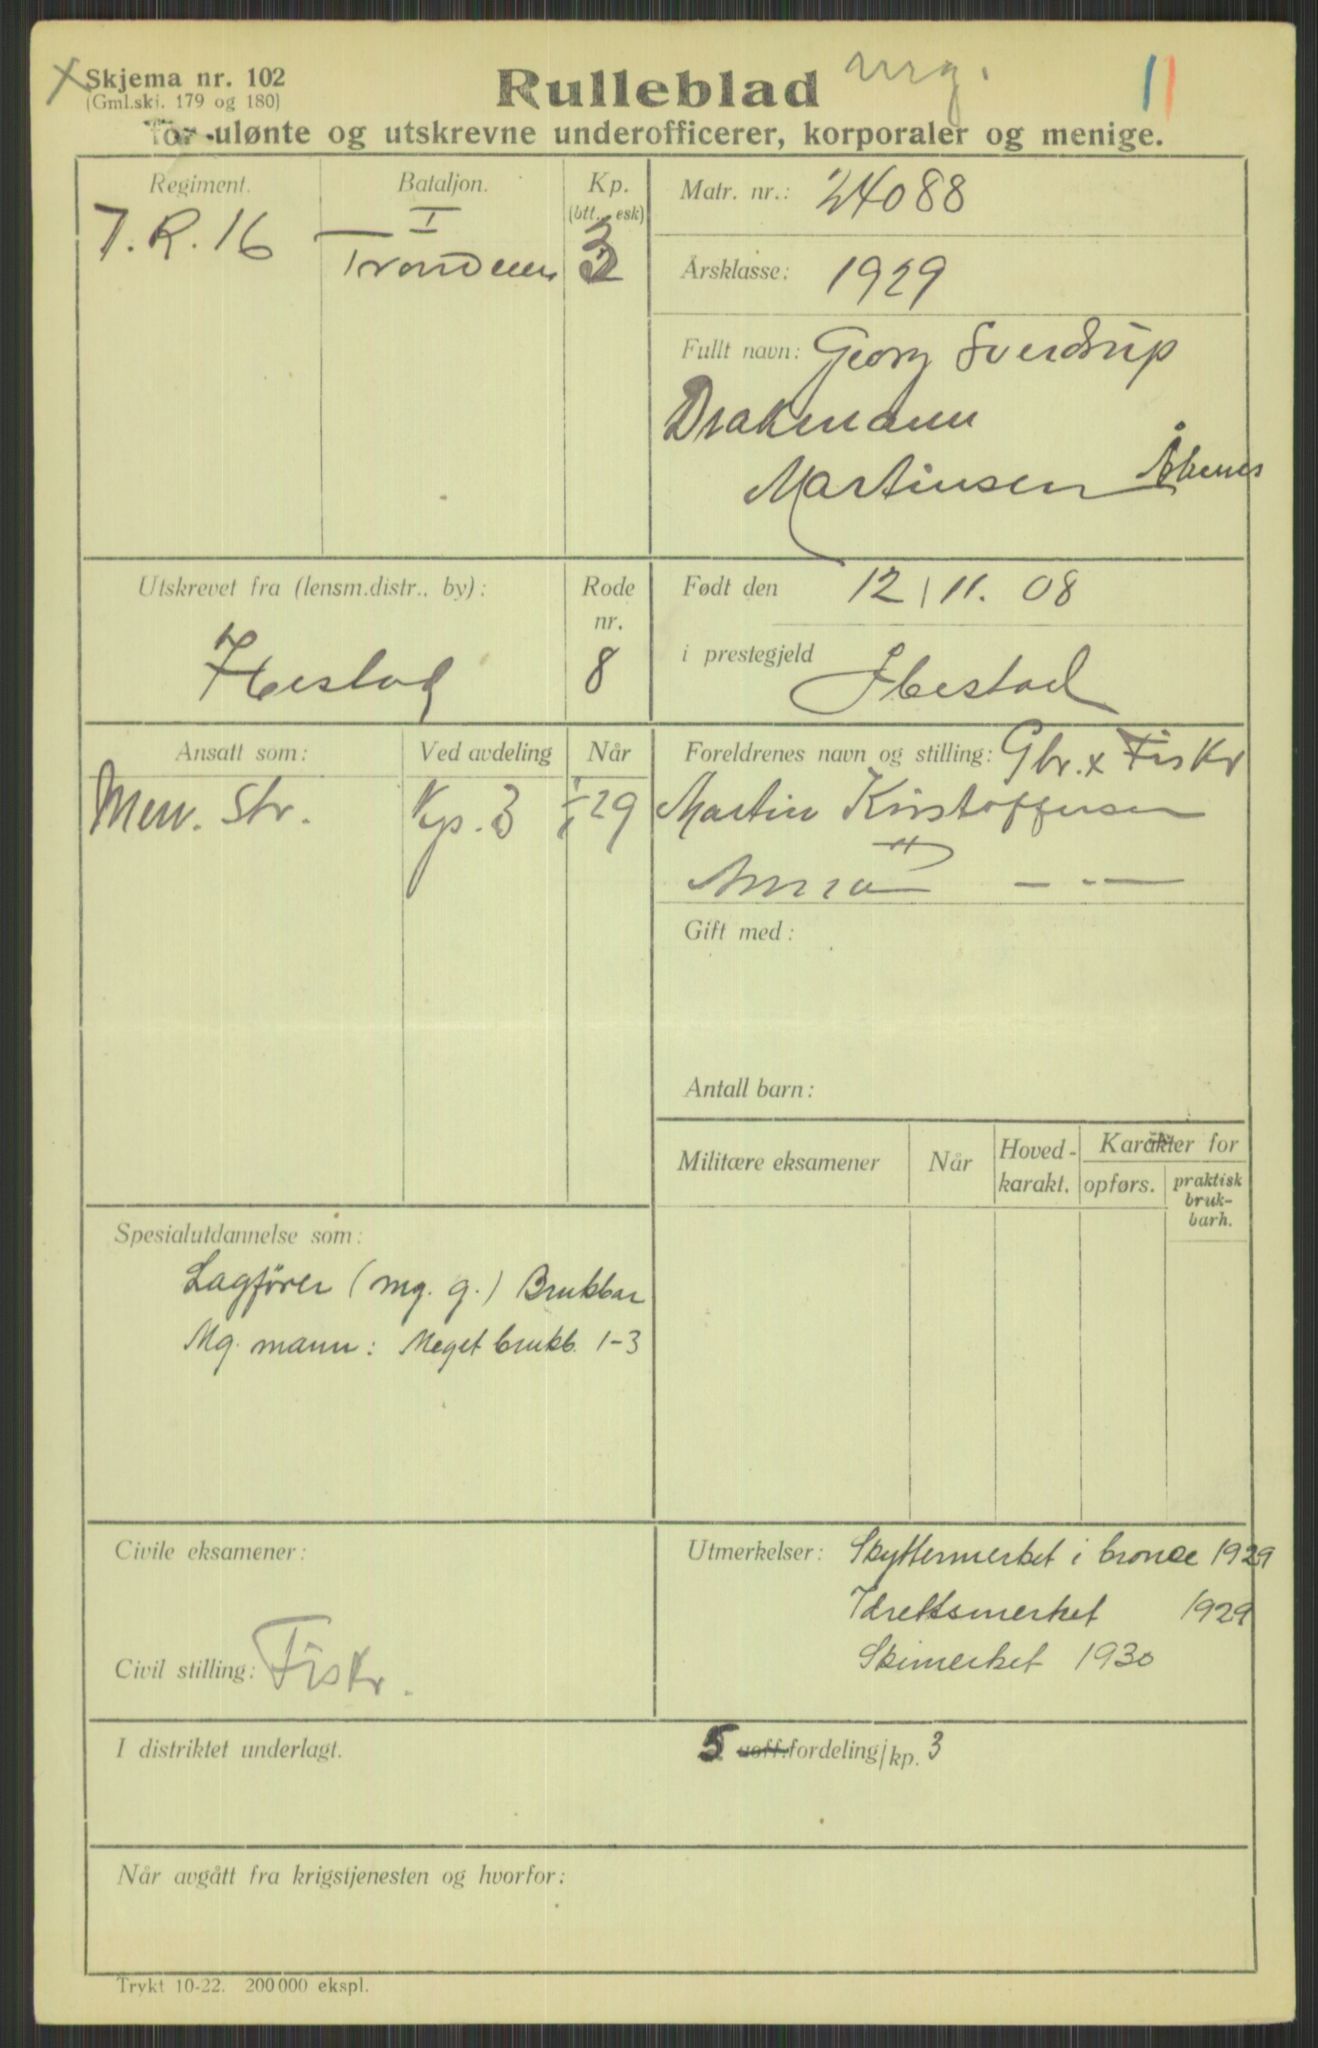 Skjema nr. 102
(Gml.skj. 179 og 180)
Rulleblad mg.
for ulønte og utskrevne underofficerer, korporaler og menige.
Regiment. Bataljon. Kp. (btt., esk)
I. R. 16 I Trondenes 3
Matr. nr.: 24088
Årsklasse: 1929
Fullt navn: Georg Sverdrup
Drakmann
Martinsen Åkenes
Utskrevet fra (lensm.distr., by): Rode nr.
Ibestad 8
Født den 12/11. 08
i prestegjeld Ibestad
Ansatt som: Ved avdeling Når
Men. Str. Kp. 3 1/1 29
Foreldrenes navn og stilling: Gbr. x Fiskr
Martin Kristoffersen
Anna — " —
Gift med:
Antall barn:
Militære eksamener Når Hoved-karakt. Karakter for
opførs. praktisk bruk-barh.
Spesialutdannelse som:
Lagfører (mg. g.) Brukbar
Mg. mann: Meget brukb. 1-3
Civile eksamener:
Civil stilling: Fiskr.
Utmerkelser: Skyttermerket i bronce 1929
Idrettsmerket 1929
Skimerket 1930
I distriktet underlagt. 5 uoff.fordeling/kp. 3
Når avgått fra krigstjenesten og hvorfor:
Trykt 10-22. 200 000 ekspl.